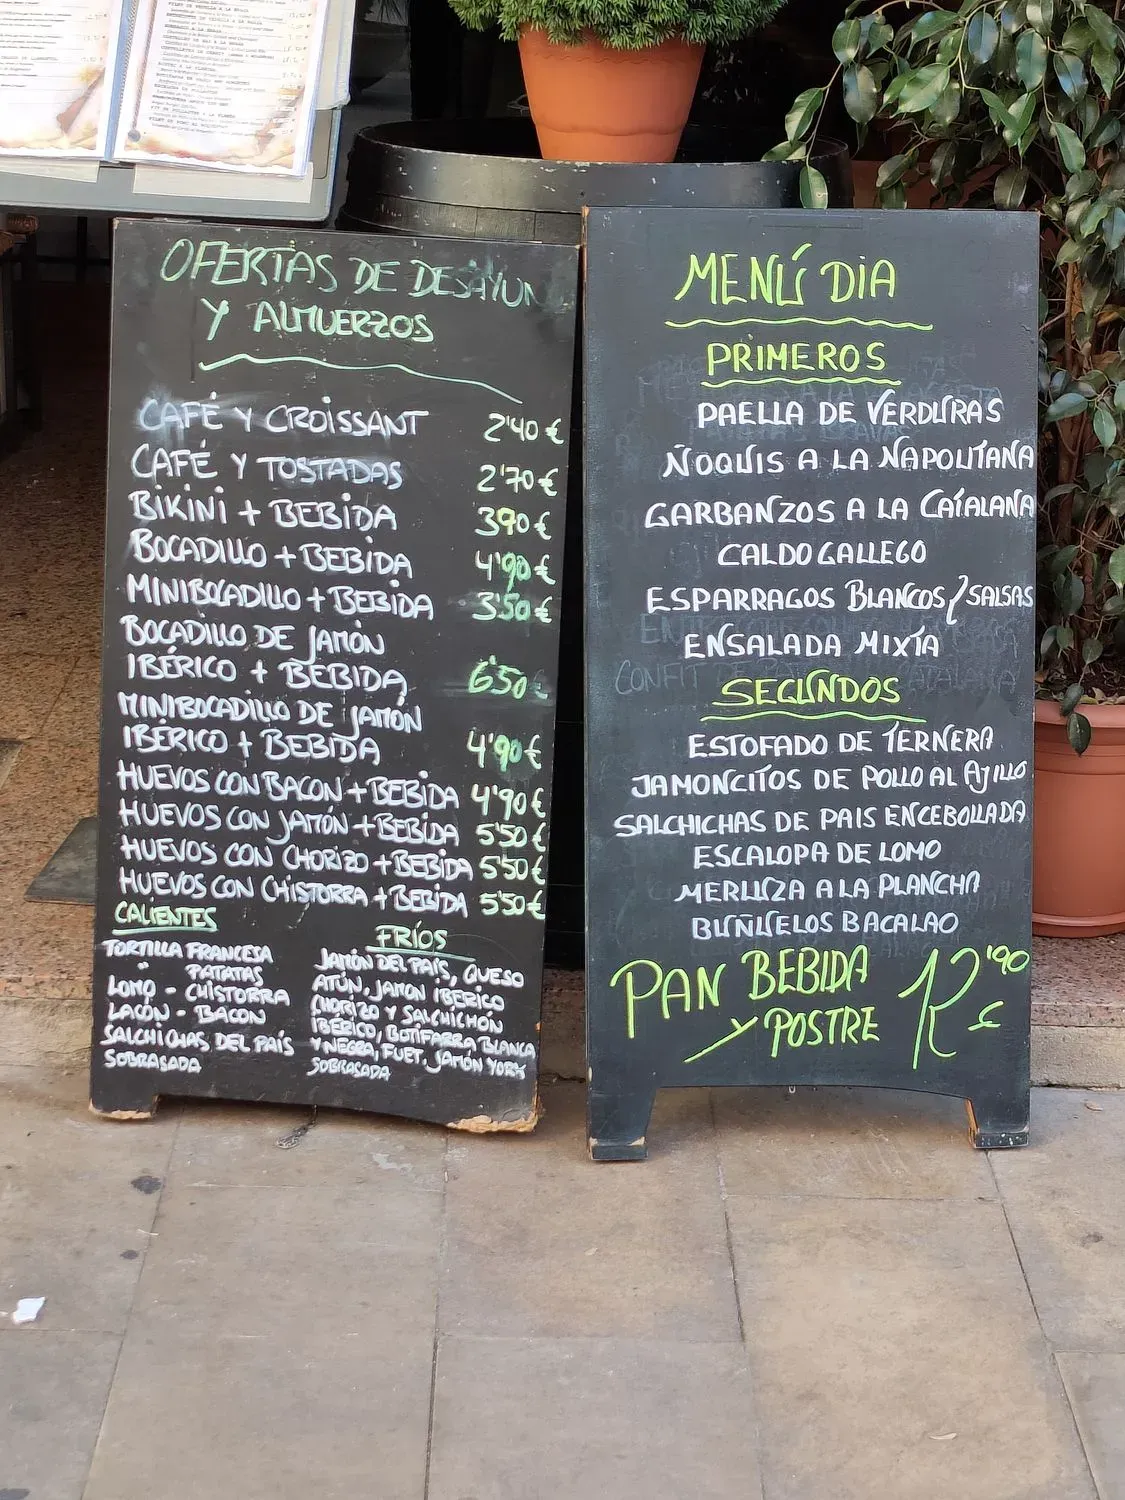 OFERTAS DE DESAYUN
Y ALMUERZOS
CAFÉ Y CROISSANT 2'40 €
CAFÉ Y TOSTADAS 2'70 €
BIKINI + BEBIDA 3'90 €
BOCADILLO + BEBIDA 4'90 €
MINIBOCADILLO + BEBIDA 3'50 €
BOCADILLO DE JAMÓN
IBÉRICO + BEBIDA 6'50 €
MINIBOCADILLO DE JAMÓN
IBÉRICO + BEBIDA 4'90 €
HUEVOS CON BACON + BEBIDA 4'90 €
HUEVOS CON JAMÓN + BEBIDA 5'50 €
HUEVOS CON CHORIZO + BEBIDA 5'50 €
HUEVOS CON CHISTORRA + BEBIDA 5'50 €
CALIENTES
TORTILLA FRANCESA
PATATAS
LOMO - CHISTORRA
LACÓN - BACON
SALCHICHAS DEL PAÍS
SOBRASADA
FRÍOS
JAMÓN DEL PAÍS, QUESO
ATÚN, JAMON IBÉRICO
CHORIZO Y SALCHICHÓN
IBÉRICO, BOTIFARRA BLANCA
Y NEGRA, FUET, JAMÓN YORK
SOBRASADA
MENÚ DIA
PRIMEROS
PAELLA DE VERDURAS
ÑOQUIS A LA NAPOLITANA
GARBANZOS A LA CATALANA
CALDO GALLEGO
ESPARRAGOS BLANCOS / SALSAS
ENSALADA MIXTA
SEGUNDOS
ESTOFADO DE TERNERA
JAMONCITOS DE POLLO AL AJILLO
SALCHICHAS DE PAIS ENCEBOLLADA
ESCALOPA DE LOMO
MERLUZA A LA PLANCHA
BUÑUELOS BACALAO
PAN BEBIDA
Y POSTRE 12'90 €